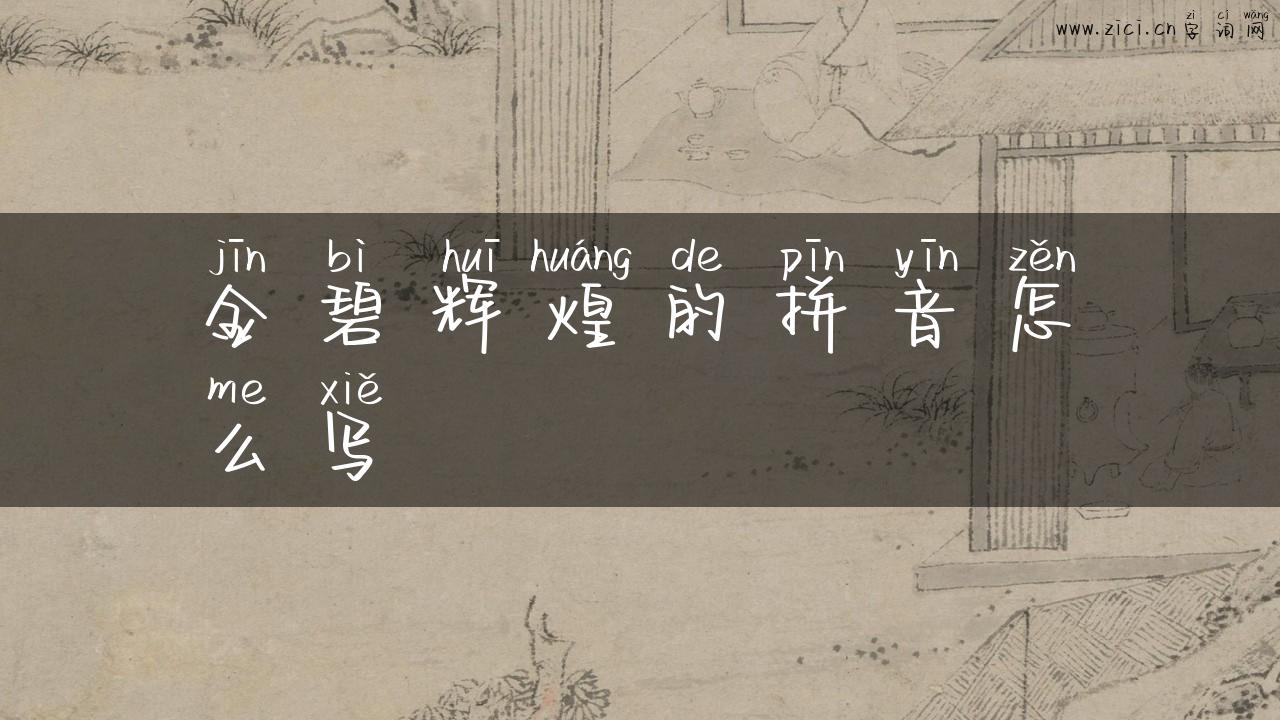 zì cí wǎng
www.zici.cn 字词网
jīn bì huī huáng de pīn yīn zěn
金碧辉煌的拼音怎
me xiě
么写